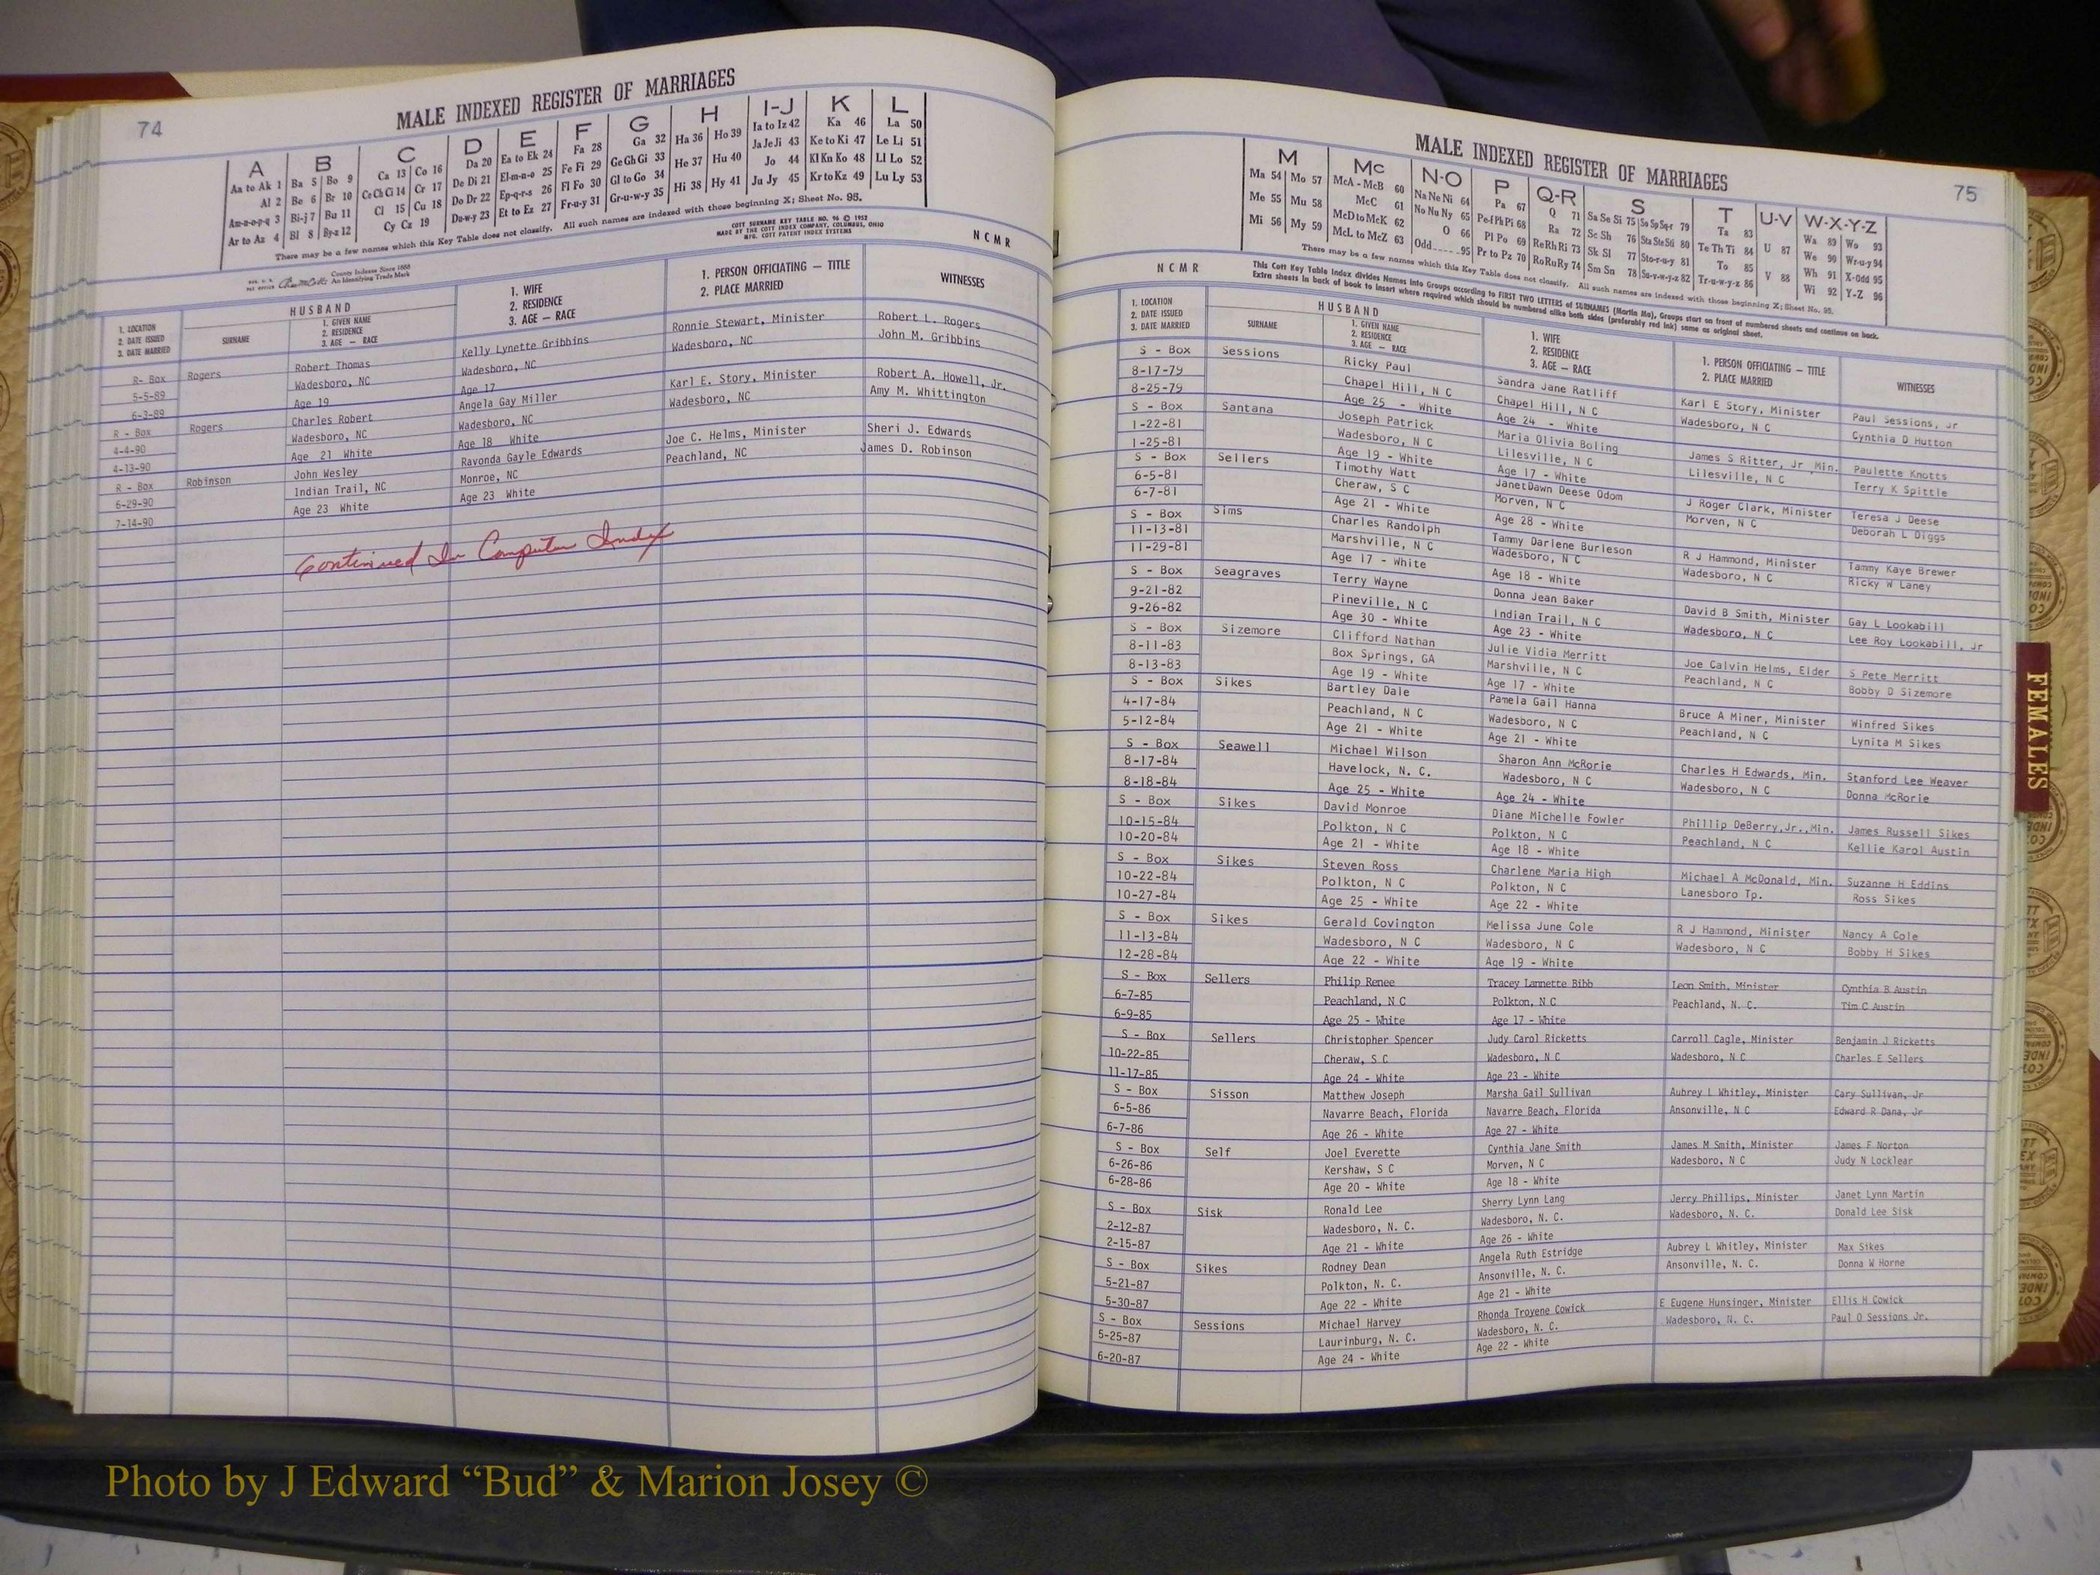 74
MALE INDEXED REGISTER OF MARRIAGES
A B C D E F G H I-J K L
Aa to Ak 1 Ba 5 Bo 9 Ca 13 Co 16 Da 20 Ea to Ek 24 Fa 28 Ga 32 Ha 36 Ho 39 Ia to Iz 42 Ka 46 La 50
Al 2 Be 6 Br 10 Ce Ch Ci 14 Cr 17 De Di 21 El-m-n-o 25 Fe Fi 29 Ge Gh Gi 33 He 37 Hu 40 Ja Je Ji 43 Ke to Ki 47 Le Li 51
Am-n-o-p-q 3 Bi-j 7 Bu 11 Cl 15 Cu 18 Do Dr 22 Ep-q-r-s 26 Fl Fo 30 Gl to Go 34 Hi 38 Hy 41 Jo 44 Kl Kn Ko 48 Ll Lo 52
Ar to Az 4 Bl 8 By-z 12 Cy Cz 19 Du-w-y 23 Et to Ez 27 Fr-u-y 31 Gr-u-w-y 35 Ju Jy 45 Kr to Kz 49 Lu Ly 53
There may be a few names which this Key Table does not classify. All such names are indexed with those beginning X; Sheet No. 95.
COTT SURNAME KEY TABLE NO. 96 © 1952
MADE BY THE COTT INDEX COMPANY, COLUMBUS, OHIO
MFG. COTT PATENT INDEX SYSTEMS
NCMR
County Indexes Since 1888
An Identifying Trade Mark
HUSBAND
1. LOCATION
2. DATE ISSUED
3. DATE MARRIED
SURNAME
1. GIVEN NAME
2. RESIDENCE
3. AGE — RACE
1. WIFE
2. RESIDENCE
3. AGE — RACE
1. PERSON OFFICIATING — TITLE
2. PLACE MARRIED
WITNESSES
R- Box Rogers Robert Thomas Kelly Lynette Gribbins Ronnie Stewart, Minister Robert L. Rogers
5-5-89 Wadesboro, NC Wadesboro, NC Wadesboro, NC John M. Gribbins
6-3-89 Age 19 Age 17
R - Box Rogers Charles Robert Angela Gay Miller Karl E. Story, Minister Robert A. Howell, Jr.
4-4-90 Wadesboro, NC Wadesboro, NC Wadesboro, NC Amy M. Whittington
4-13-90 Age 21 White Age 18 White
R - Box Robinson John Wesley Ravonda Gayle Edwards Joe C. Helms, Minister Sheri J. Edwards
6-29-90 Indian Trail, NC Monroe, NC Peachland, NC James D. Robinson
7-14-90 Age 23 White Age 23 White
Continued In Computer Index
75
MALE INDEXED REGISTER OF MARRIAGES
M Mc N-O P Q-R S T U-V W-X-Y-Z
Ma 54 Mo 57 McA - McB 60 Na Ne Ni 64 Pa 67 Q 71 Sa Se Si 75 So Sp Sq-r 79 Ta 83 Wa 89 Wo 93
Me 55 Mu 58 McC 61 No Nu Ny 65 Pe-f Ph Pi 68 Ra 72 Sc Sh 76 Sta Ste Sti 80 Te Th Ti 84 U 87 We 90 Wr-u-y 94
Mi 56 My 59 McD to McK 62 O 66 Pl Po 69 Re Rh Ri 73 Sk Sl 77 Sto-r-u-y 81 To 85 Wh 91 X-Odd 95
McL to McZ 63 Odd 95 Pr to Pz 70 Ro Ru Ry 74 Sm Sn 78 Su-v-w-y-z 82 Tr-u-w-y-z 86 V 88 Wi 92 Y-Z 96
There may be a few names which this Key Table does not classify. All such names are indexed with those beginning X; Sheet No. 95.
NCMR
This Cott Key Table Index divides Names into Groups according to FIRST TWO LETTERS of SURNAMES (Martin Ma), Groups start on front of numbered sheets and continue on back.
Extra sheets in back of book to insert where required which should be numbered alike both sides (preferably red ink) same as original sheet.
HUSBAND
1. LOCATION
2. DATE ISSUED
3. DATE MARRIED
SURNAME
1. GIVEN NAME
2. RESIDENCE
3. AGE — RACE
1. WIFE
2. RESIDENCE
3. AGE — RACE
1. PERSON OFFICIATING — TITLE
2. PLACE MARRIED
WITNESSES
S - Box Sessions Ricky Paul Sandra Jane Ratliff Karl E Story, Minister Paul Sessions, Jr
8-17-79 Chapel Hill, N C Chapel Hill, N C Wadesboro, N C Cynthia D Hutton
8-25-79 Age 25 - White Age 24 - White
S - Box Santana Joseph Patrick Maria Olivia Boling James S Ritter, Jr Min. Paulette Knotts
1-22-81 Wadesboro, N C Lilesville, N C Lilesville, N C Terry K Spittle
1-25-81 Age 19 - White Age 17 - White
S - Box Sellers Timothy Watt JanetDawn Deese Odom J Roger Clark, Minister Teresa J Deese
6-5-81 Cheraw, S C Morven, N C Morven, N C Deborah L Diggs
6-7-81 Age 21 - White Age 28 - White
S - Box Sims Charles Randolph Tammy Darlene Burleson R J Hammond, Minister Tammy Kaye Brewer
11-13-81 Marshville, N C Wadesboro, N C Wadesboro, N C Ricky W Laney
11-29-81 Age 17 - White Age 18 - White
S - Box Seagraves Terry Wayne Donna Jean Baker David B Smith, Minister Gay L Lookabill
9-21-82 Pineville, N C Indian Trail, N C Wadesboro, N C Lee Roy Lookabill, Jr
9-26-82 Age 30 - White Age 23 - White
S - Box Sizemore Clifford Nathan Julie Vidia Merritt Joe Calvin Helms, Elder S Pete Merritt
8-11-83 Box Springs, GA Marshville, N C Peachland, N C Bobby D Sizemore
8-13-83 Age 19 - White Age 17 - White
S - Box Sikes Bartley Dale Pamela Gail Hanna Bruce A Miner, Minister Winfred Sikes
4-17-84 Peachland, N C Wadesboro, N C Peachland, N C Lynita M Sikes
5-12-84 Age 21 - White Age 21 - White
S - Box Seawell Michael Wilson Sharon Ann McRorie Charles H Edwards, Min. Stanford Lee Weaver
8-17-84 Havelock, N. C. Wadesboro, N C Wadesboro, N C Donna McRorie
8-18-84 Age 25 - White Age 24 - White
S - Box Sikes David Monroe Diane Michelle Fowler Phillip DeBerry,Jr.,Min. James Russell Sikes
10-15-84 Polkton, N C Polkton, N C Peachland, N C Kellie Karol Austin
10-20-84 Age 21 - White Age 18 - White
S - Box Sikes Steven Ross Charlene Maria High Michael A McDonald, Min. Suzanne H Eddins
10-22-84 Polkton, N C Polkton, N C Lanesboro Tp. Ross Sikes
10-27-84 Age 25 - White Age 22 - White
S - Box Sikes Gerald Covington Melissa June Cole R J Hammond, Minister Nancy A Cole
11-13-84 Wadesboro, N C Wadesboro, N C Wadesboro, N C Bobby H Sikes
12-28-84 Age 22 - White Age 19 - White
S - Box Sellers Philip Renee Tracey Lannette Bibb Leon Smith, Minister Cynthia B Austin
6-7-85 Peachland, N C Polkton, N C Peachland, N. C. Tim C Austin
6-9-85 Age 25 - White Age 17 - White
S - Box Sellers Christopher Spencer Judy Carol Ricketts Carroll Cagle, Minister Benjamin J Ricketts
10-22-85 Cheraw, S C Wadesboro, N C Wadesboro, N C Charles E Sellers
11-17-85 Age 24 - White Age 23 - White
S - Box Sisson Matthew Joseph Marsha Gail Sullivan Aubrey L Whitley, Minister Cary Sullivan, Jr
6-5-86 Navarre Beach, Florida Navarre Beach, Florida Ansonville, N C Edward R Dana, Jr
6-7-86 Age 26 - White Age 27 - White
S - Box Self Joel Everette Cynthia Jane Smith James M Smith, Minister James F Norton
6-26-86 Kershaw, S C Morven, N C Wadesboro, N C Judy N Locklear
6-28-86 Age 20 - White Age 18 - White
S - Box Sisk Ronald Lee Sherry Lynn Lang Jerry Phillips, Minister Janet Lynn Martin
2-12-87 Wadesboro, N. C. Wadesboro, N. C. Wadesboro, N. C. Donald Lee Sisk
2-15-87 Age 21 - White Age 26 - White
S - Box Sikes Rodney Dean Angela Ruth Estridge Aubrey L Whitley, Minister Max Sikes
5-21-87 Polkton, N. C. Ansonville, N. C. Ansonville, N. C. Donna W Horne
5-30-87 Age 22 - White Age 21 - White
S - Box Sessions Michael Harvey Rhonda Troyene Cowick E Eugene Hunsinger, Minister Ellis H Cowick
5-25-87 Laurinburg, N. C. Wadesboro, N. C. Wadesboro, N. C. Paul O Sessions Jr.
6-20-87 Age 24 - White Age 22 - White
FEMALES
Photo by J Edward “Bud” & Marion Josey ©